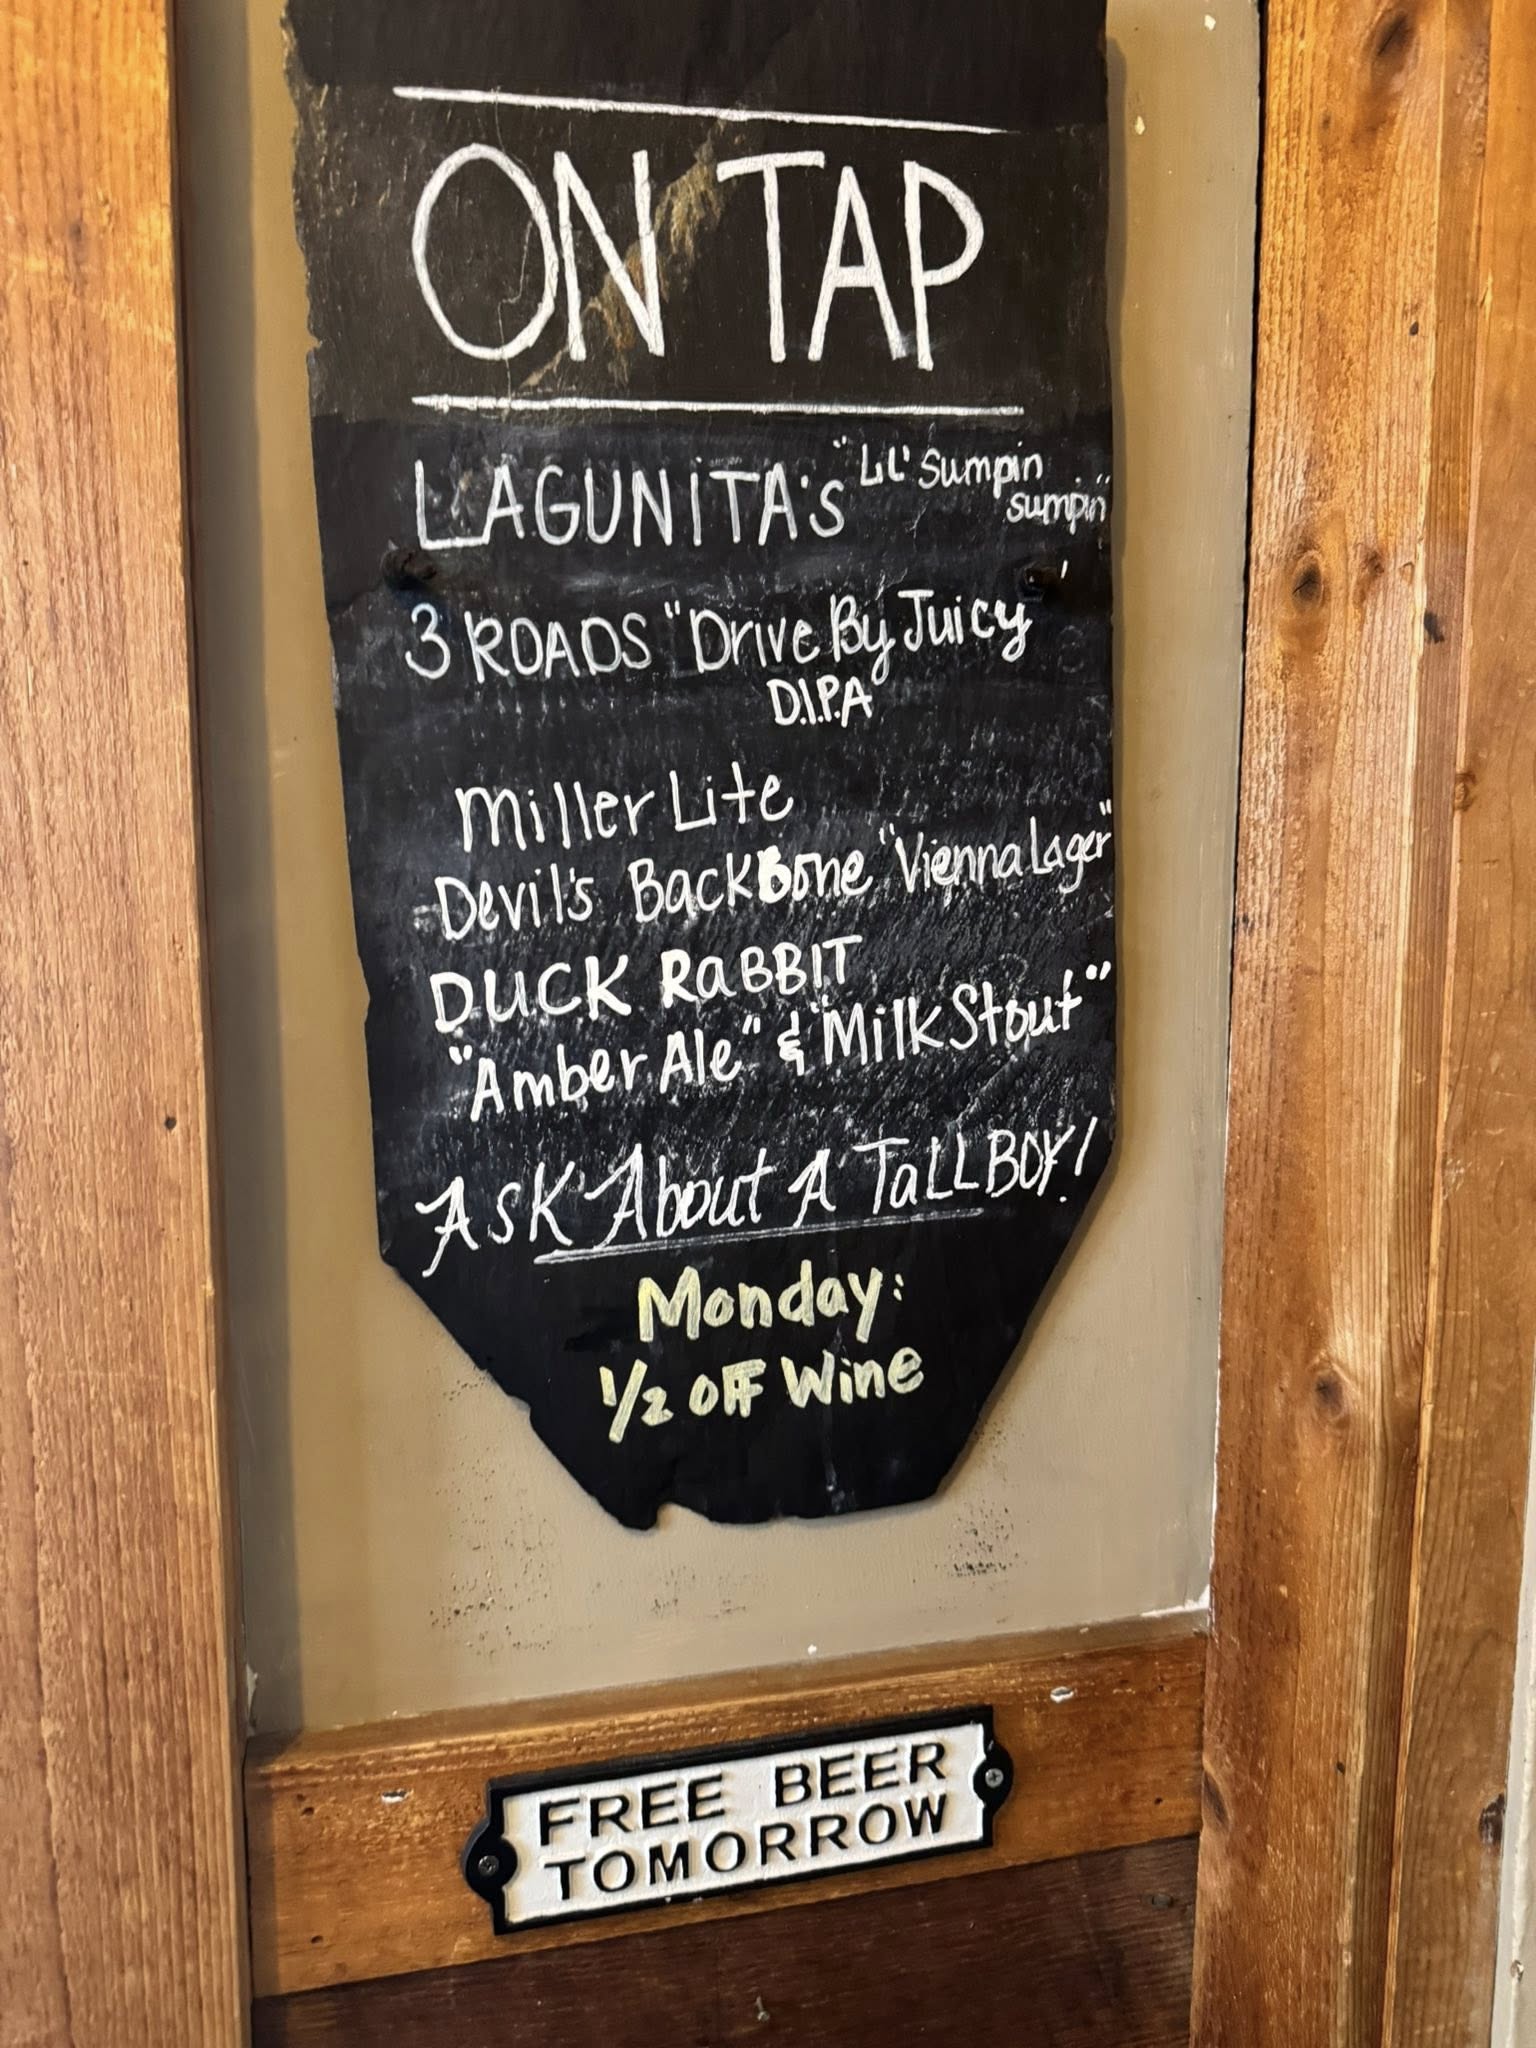 ON TAP
LAGUNITA'S "LiL' Sumpin
sumpin"
3 ROADS "Drive By Juicy
D.I.P.A
Miller Lite
Devil's Backbone "Vienna Lager"
DUCK RaBBIT
"Amber Ale" & "Milk Stout"
Ask About A TaLLBOY!
Monday:
1/2 off Wine
FREE BEER
TOMORROW